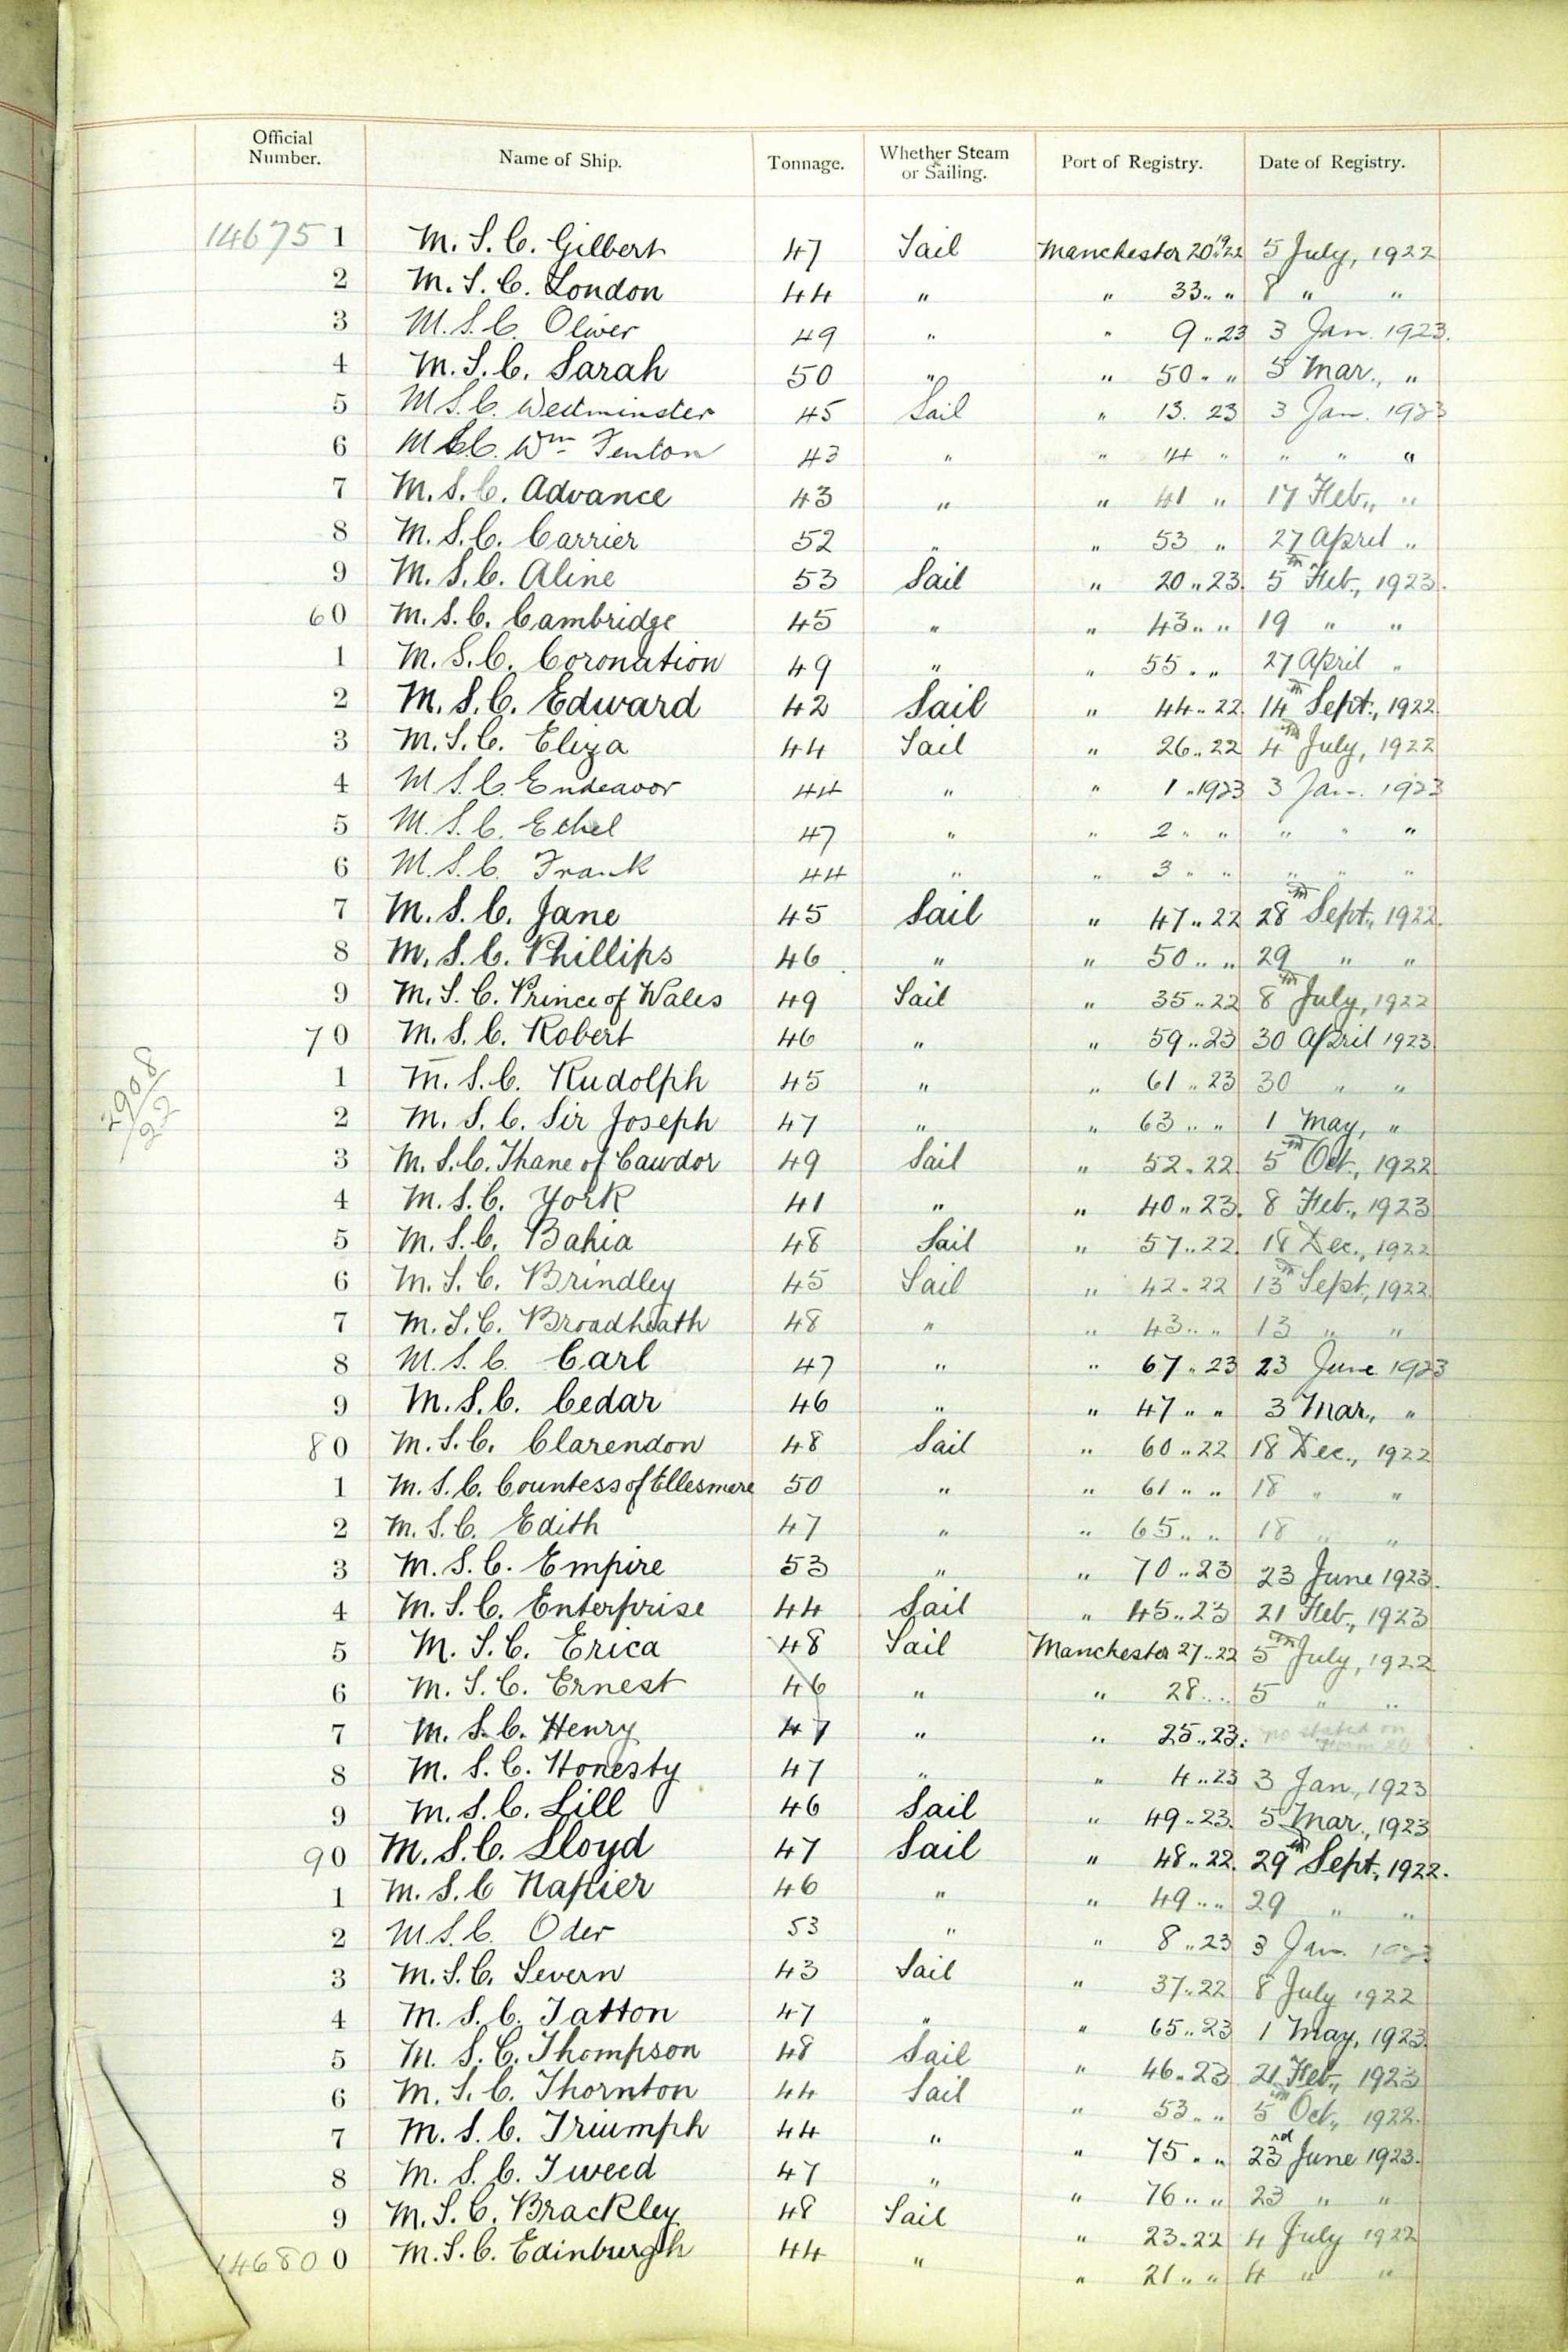 Official Number. Name of Ship. Tonnage. Whether Steam or Sailing. Port of Registry. Date of Registry.
14675 1 M. S. C. Gilbert 47 Sail Manchester 20..1922 5 July, 1922
2 M. S. C. London 44 " " 33.. " 8 " "
3 M. S. C. Oliver 49 " " 9..23 3 Jan. 1923.
4 M. S. C. Sarah 50 " " 50.. " 5 Mar., "
5 M S. C. Westminster 45 Sail " 13. 23 3 Jan. 1923
6 M S C. Wm Fenton 43 " " 14 " " " "
7 M. S. C. Advance 43 " " 41 " 17 Feb., "
8 M. S. C. Carrier 52 " " 53 " 27 April "
9 M. S. C. Aline 53 Sail " 20..23. 5th Feb., 1923.
60 M. S. C. Cambridge 45 " " 43.. " 19 " "
1 M. S. C. Coronation 49 " " 55.. " 27 April "
2 M. S. C. Edward 42 Sail " 44..22. 14th Sept., 1922.
3 M. S. C. Eliza 44 Sail " 26..22 4th July, 1922
4 M S. C. Endeavor 44 " " 1..1923 3 Jan. 1923
5 M. S. C. Ethel 47 " " 2.. " " " "
6 M. S. C. Frank 44 " " 3 " " " " "
7 M. S. C. Jane 45 Sail " 47..22 28th Sept., 1922.
8 M. S. C. Phillips 46 " " 50.. " 29 " "
9 M. S. C. Prince of Wales 49 Sail " 35..22 8th July, 1922
70 M. S. C. Robert 46 " " 59..23 30 April 1923.
1 M. S. C. Rudolph 45 " " 61..23 30 " "
2 M. S. C. Sir Joseph 47 " " 63.. " 1 May, "
2908/22
3 M. S. C. Thane of Cawdor 49 Sail " 52..22. 5th Oct., 1922.
4 M. S. C. York 41 " " 40..23. 8 Feb., 1923
5 M. S. C. Bahia 48 Sail " 57..22. 18 Dec., 1922
6 M. S. C. Brindley 45 Sail " 42..22 13th Sept., 1922.
7 M. S. C. Broadheath 48 " " 43.. " 13 " "
8 M. S. C. Carl 47 " " 67..23 23 June 1923
9 M. S. C. Cedar 46 " " 47.. " 3 Mar., "
80 M. S. C. Clarendon 48 Sail " 60..22 18 Dec., 1922
1 M. S. C. Countess of Ellesmere 50 " " 61.. " 18 " "
2 M. S. C. Edith 47 " " 65.. " 18 " "
3 M. S. C. Empire 53 " " 70..23 23 June 1923.
4 M. S. C. Enterprise 44 Sail " 45..23 21 Feb., 1923
5 M. S. C. Erica 48 Sail Manchester 27..22 5th July, 1922
6 M. S. C. Ernest 46 " " 28.. " 5 " "
7 M. S. C. Henry 47 " " 25..23. no stated on form 20
8 M. S. C. Honesty 47 " " 4..23 3 Jan., 1923
9 M. S. C. Lill 46 Sail " 49..23. 5 Mar., 1923
90 M. S. C. Lloyd 47 Sail " 48..22. 29th Sept., 1922.
1 M. S. C Napier 46 " " 49.. " 29 " "
2 M. S. C. Oder 53 " " 8..23 3 Jan. 1923
3 M. S. C. Severn 43 Sail " 37..22 8 July 1922
4 M. S. C. Tatton 47 " " 65..23 1 May, 1923.
5 M. S. C. Thompson 48 Sail " 46..23 21 Feb., 1923
6 M. S. C. Thornton 44 Sail " 53.. " 5th Oct., 1922.
7 M. S. C. Triumph 44 " " 75.. " 23rd June 1923.
8 M. S. C. Tweed 47 " " 76.. " 23 " "
9 M. S. C. Brackley 48 Sail " 23..22 4 July 1922
14680 0 M. S. C. Edinburgh 44 " " 21.. " 4 " "